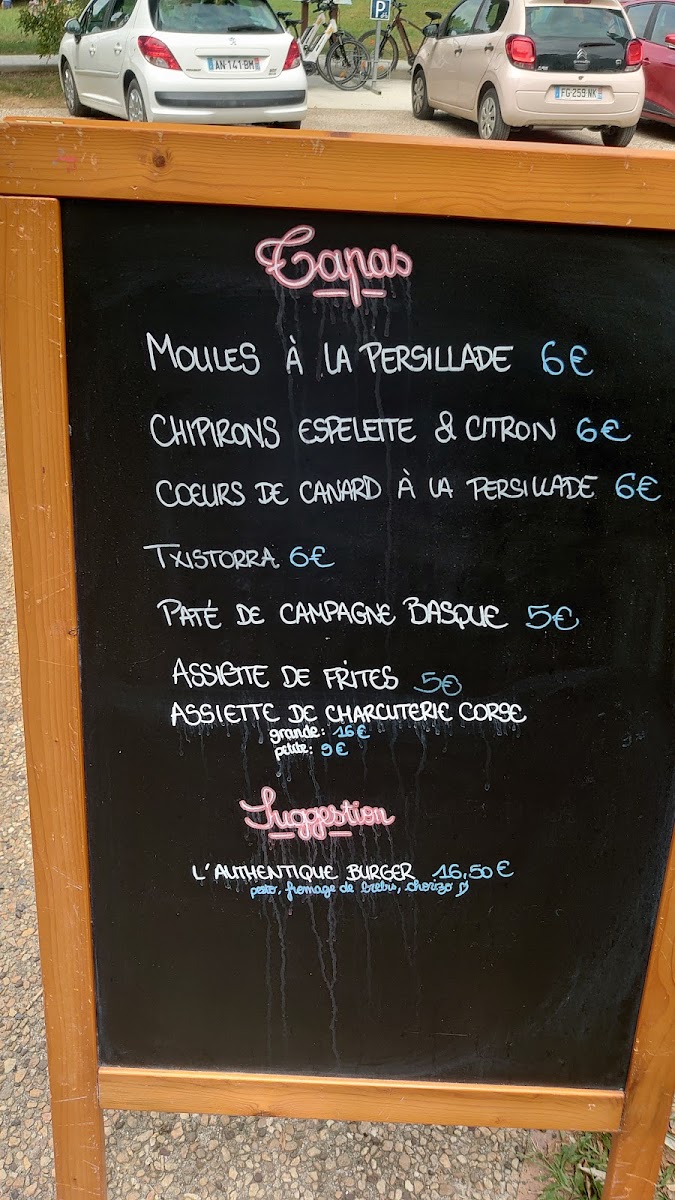 P
AN-141-BM
FG-259-NK
Tapas
MOULES À LA PERSILLADE 6€
CHIPIRONS ESPELETTE & CITRON 6€
COEURS DE CANARD À LA PERSILLADE 6€
TXISTORRA 6€
PATÉ DE CAMPAGNE BASQUE 5€
ASSIETTE DE FRITES 5€
ASSIETTE DE CHARCUTERIE CORSE
grande: 16€
petite: 9€
Suggestion
L'AUTHENTIQUE BURGER 16,50€
pesto, fromage de brebis, chorizo